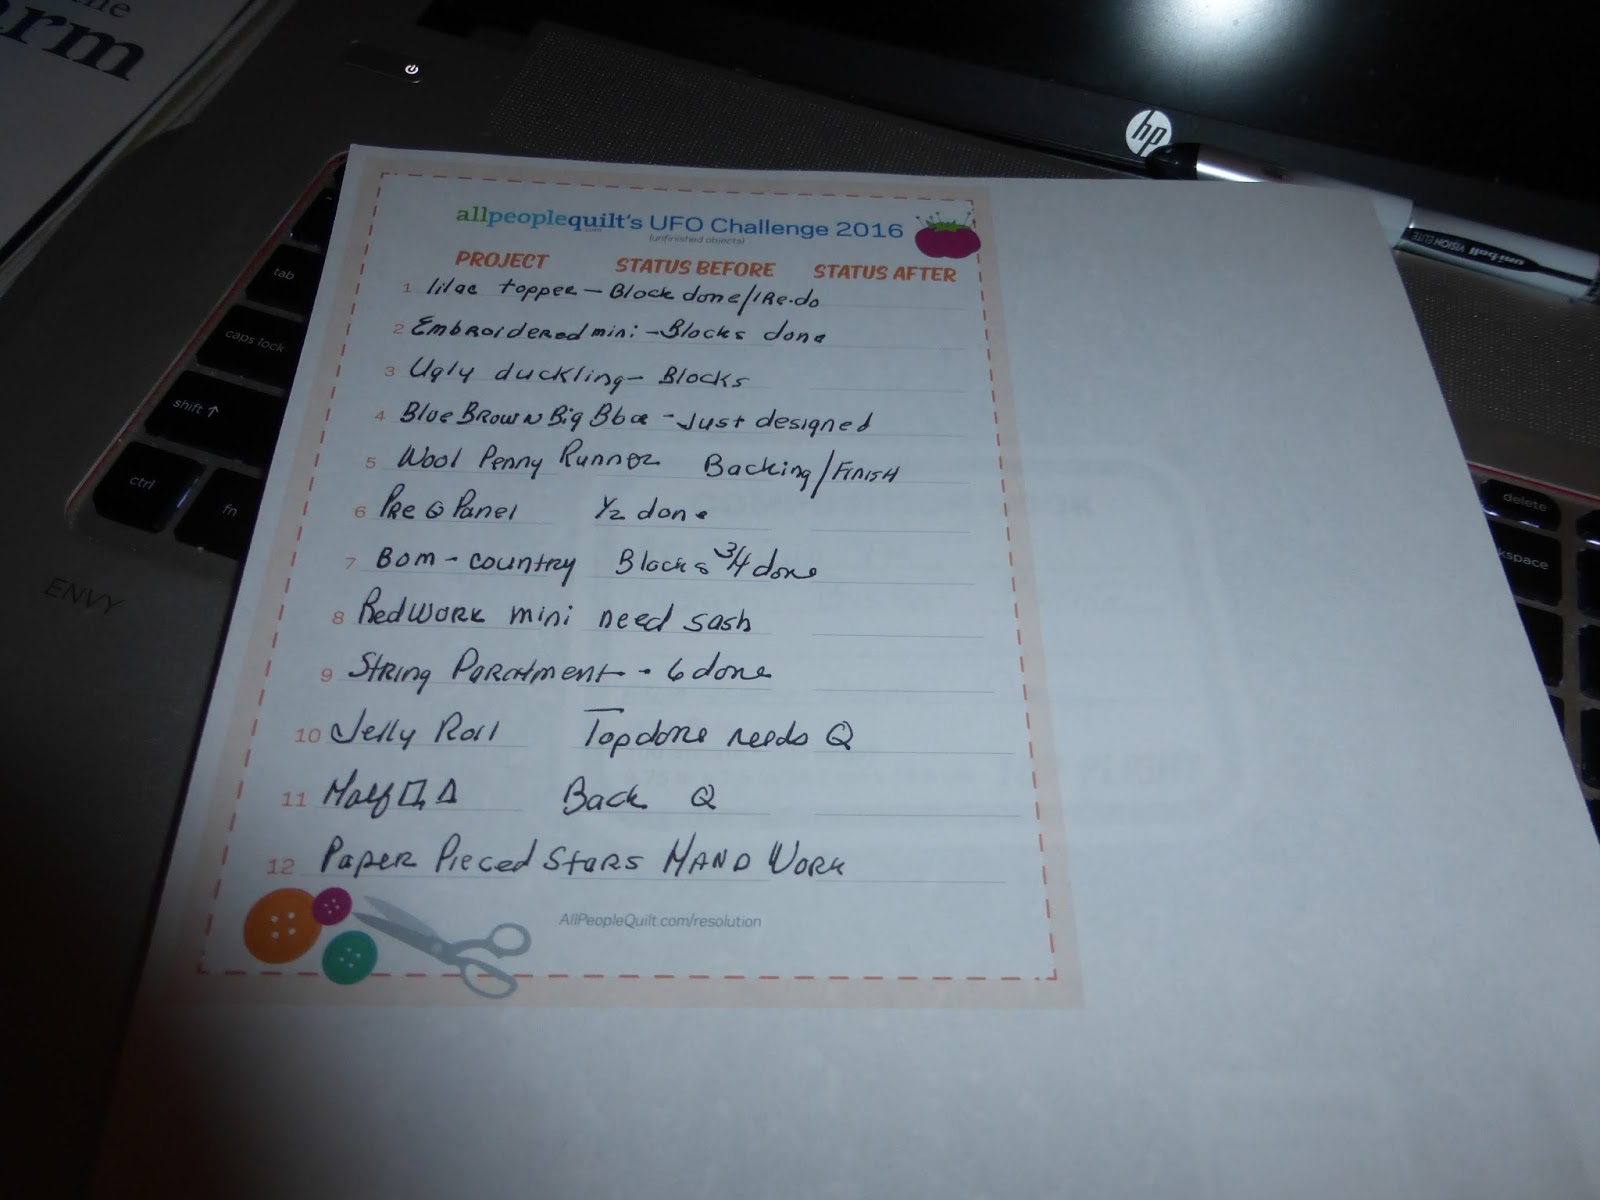 the
arm
hp
uni-ball VISION ELITE
tab
caps lock
shift
ctrl
fn
delete
kspace
ENVY
allpeoplequilt's UFO Challenge 2016
.com
(unfinished objects)
PROJECT STATUS BEFORE STATUS AFTER
1 lilac topper - Block done/1 Re-do
2 Embroidered mini - Blocks done
3 Ugly duckling - Blocks
4 Blue Brown Big - Just designed
5 Wool Penny Runner Backing/Finish
6 Pre Q Panel 1/2 done
7 Bom - country Blocks 3/4 done
8 Redwork mini need sash
9 String - 6 done
10 Jelly Roll Top done needs Q
11 Half □ △ Back Q
12 Paper Pieced Stars HAND WORK
AllPeopleQuilt.com/resolution